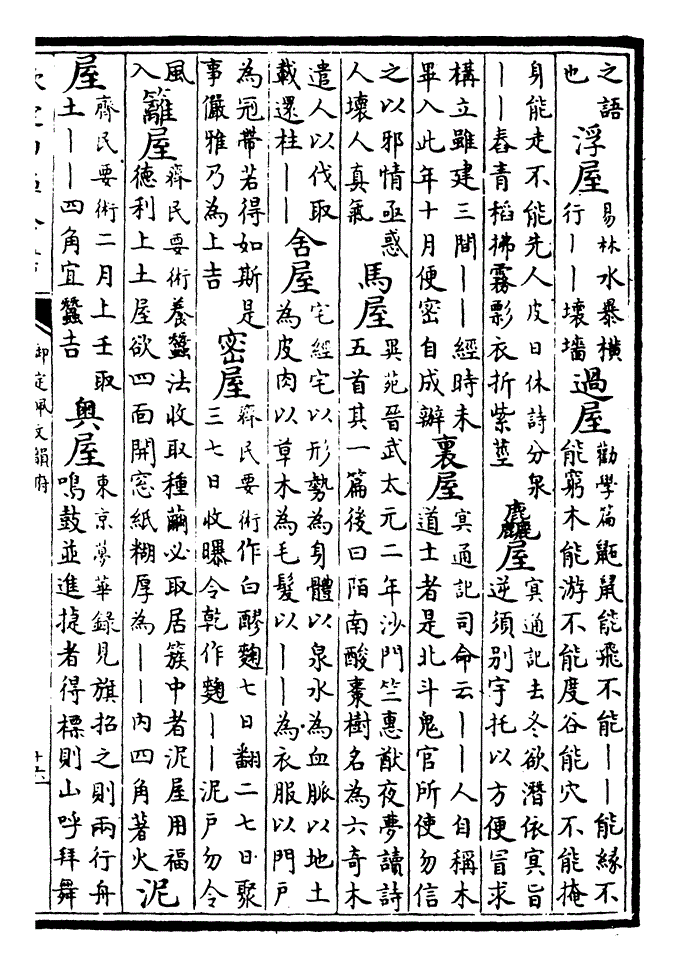 之語
也
浮屋
易林水暴橫
行——壞墻
過屋
勸學篇鼫鼠能飛不能——能緣不
能窮木能游不能度谷能穴不能掩
身能走不能先人皮日休詩分泉
——舂青稻拂霧影衣折紫莖
麤屋
冥通記去冬欲潛依冥旨
逆須別宇托以方便冒求
構立雖建三間——經時未
畢入此年十月便密自成辦
裏屋
冥通記司命云——人自稱木
道士者是北斗鬼官所使勿信
之以邪情亟惑
人壞人真氣
馬屋
異苑晉武太元二年沙門竺惠猷夜夢讀詩
五首其一篇後曰陌南酸棗樹名為六奇木
遣人以伐取
載還柱——
舍屋
宅經宅以形勢為身體以泉水為血脈以地土
為皮肉以草木為毛髮以——為衣服以門戶
為冠帶若得如斯是
事儼雅乃為上吉
密屋
齊民要術作白醪麴七日翻二七日聚
三七日收曝令乾作麴——泥戶勿令
風
入
籬屋
齊民要術養蠶法收取種繭必取居簇中者泥屋用福
德利上土屋欲四面開窓紙糊厚為——內四角著火
泥
屋
齊民要術二月上壬取
土——四角宜蠶吉
奧屋
東京夢華錄見旗招之則兩行舟
鳴鼓並進捷者得標則山呼拜舞
御定佩文韻府
十六